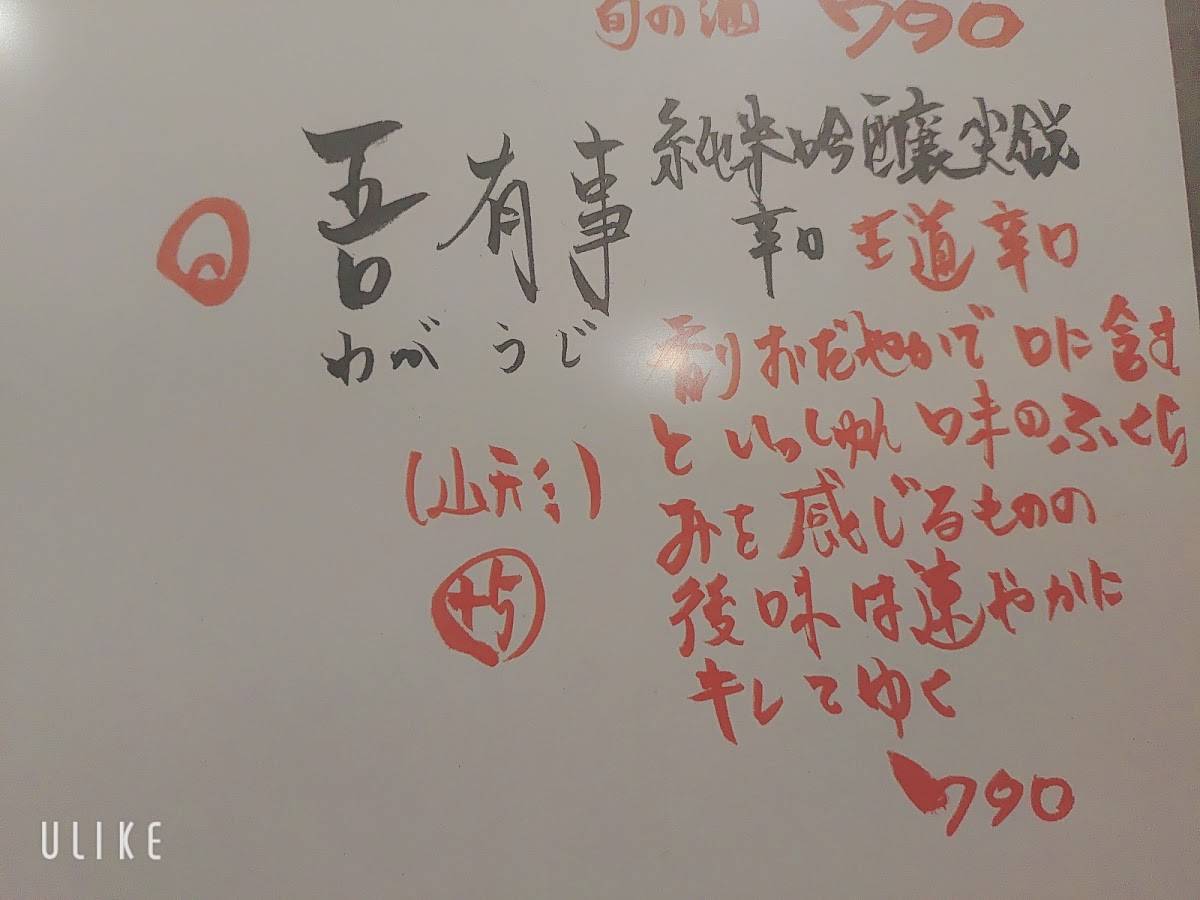 旬の酒 790
吾有事
わがうじ
(山形)
+5
純米吟醸尖鋭
辛口 王道辛口
香りおだやかで口に含む
といっしゅん味のふくら
みを感じるものの
後味は速やかに
キレてゆく
790
ULIKE